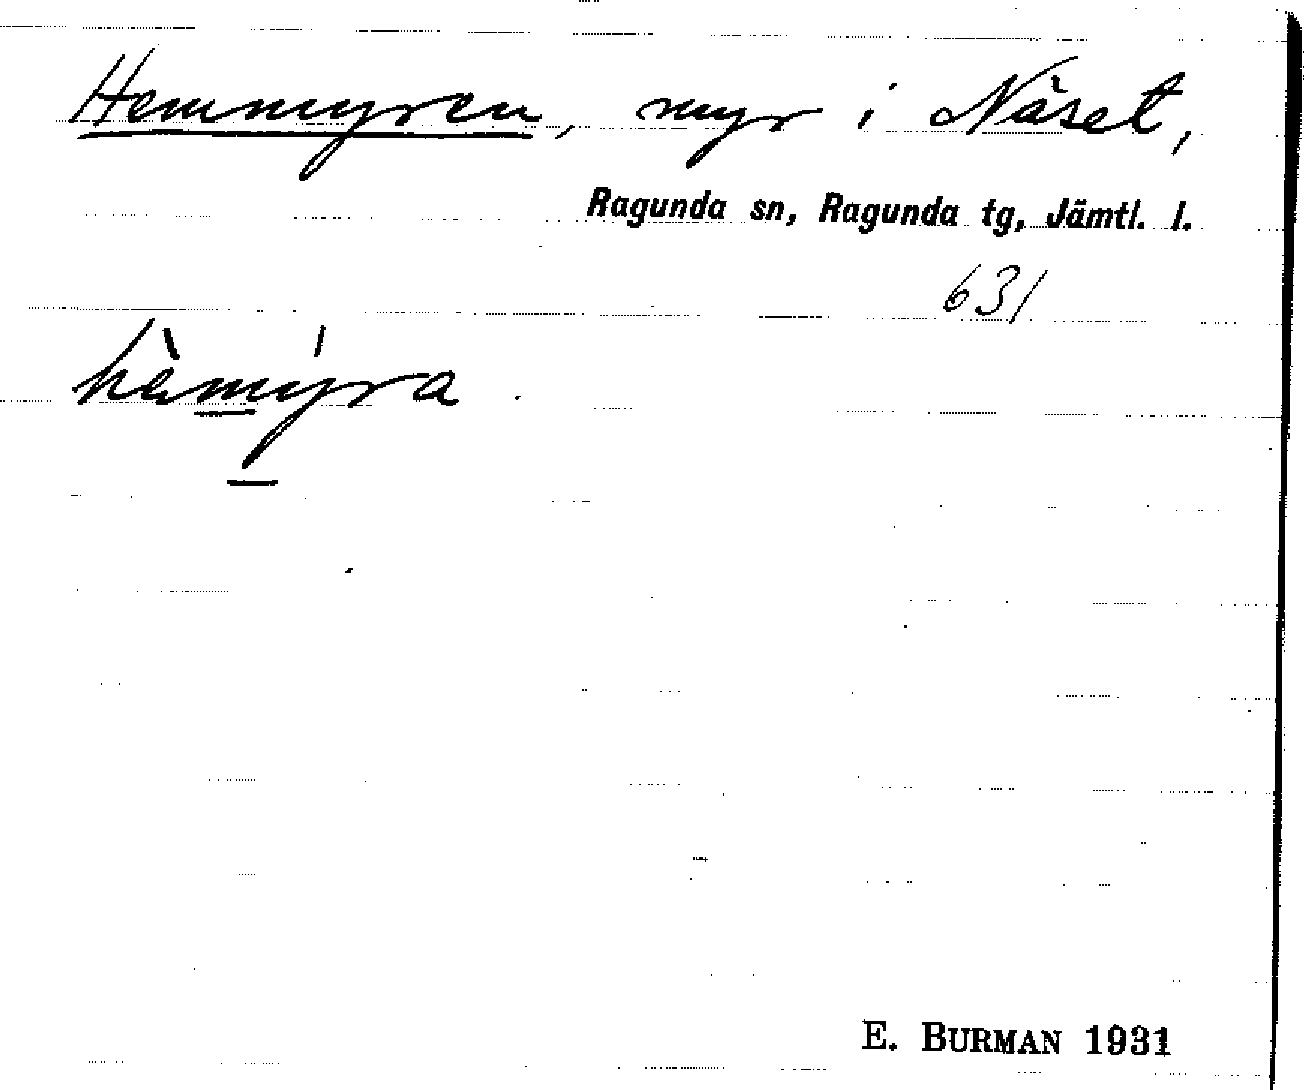 Hemmyren, myr i Näset,
Ragunda sn, Ragunda tg, Jämtl. l.
631
hèmýra.
E. BURMAN 1931